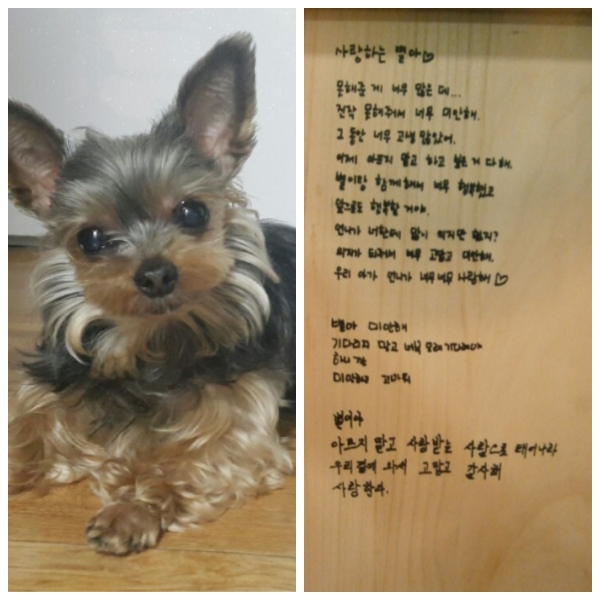 사랑하는 별아♡
못해준 게 너무 많은데...
진작 못해줘서 너무 미안해.
그 동안 너무 고생 많았어.
이제 아프지 말고 하고 싶은 거 다 해.
별이랑 함께해서 너무 행복했고
앞으로도 행복할 거야.
언니가 너한테 많이 의지한 알지?
와줘서 너무 고맙고 미안해.
우리 아가 언니가 너무너무 사랑해♡
별아 미안해
기다리지 말고
미안해 고마워
별이야
아프지 말고 사랑받는 사람으로 태어나라
우리 곁에 와서 고맙고 감사해
사랑한다.